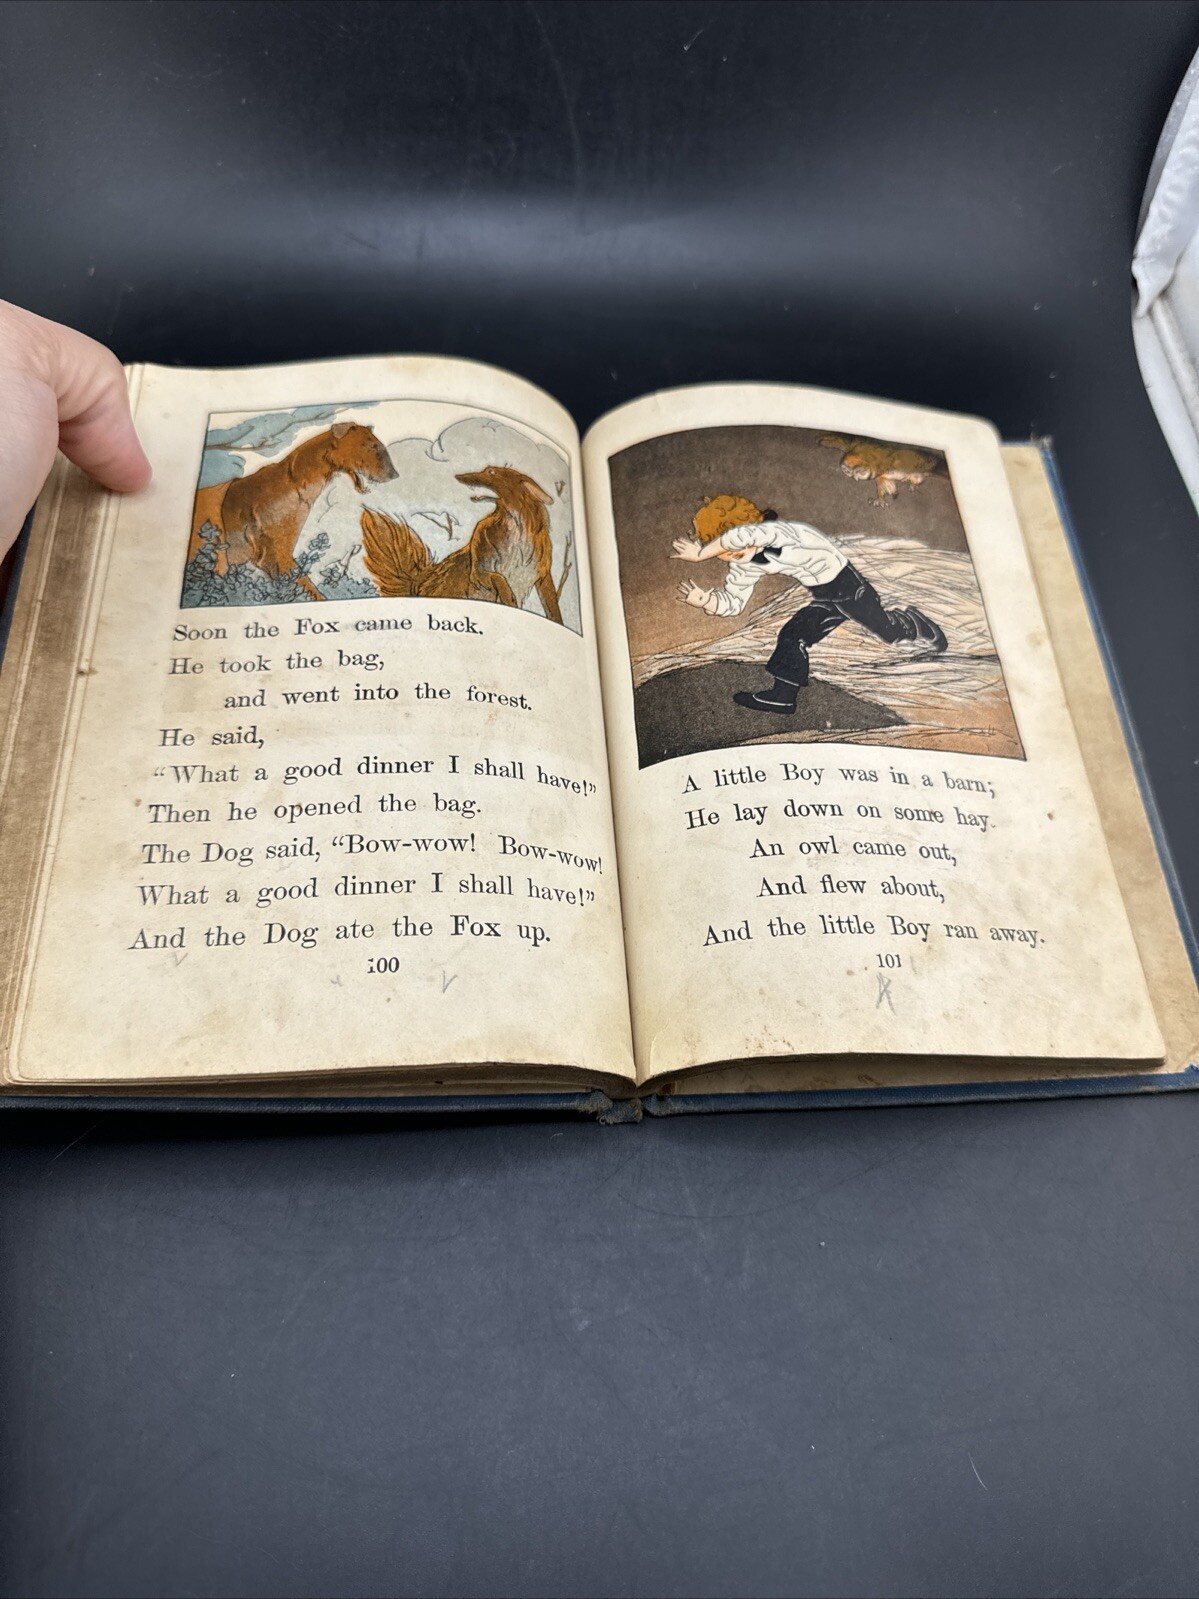 Soon the Fox came back.
He took the bag,
and went into the forest.
He said,
“What a good dinner I shall have!”
Then he opened the bag.
The Dog said, “Bow-wow! Bow-wow!
What a good dinner I shall have!”
And the Dog ate the Fox up.
100
A little Boy was in a barn;
He lay down on some hay.
An owl came out,
And flew about,
And the little Boy ran away.
101